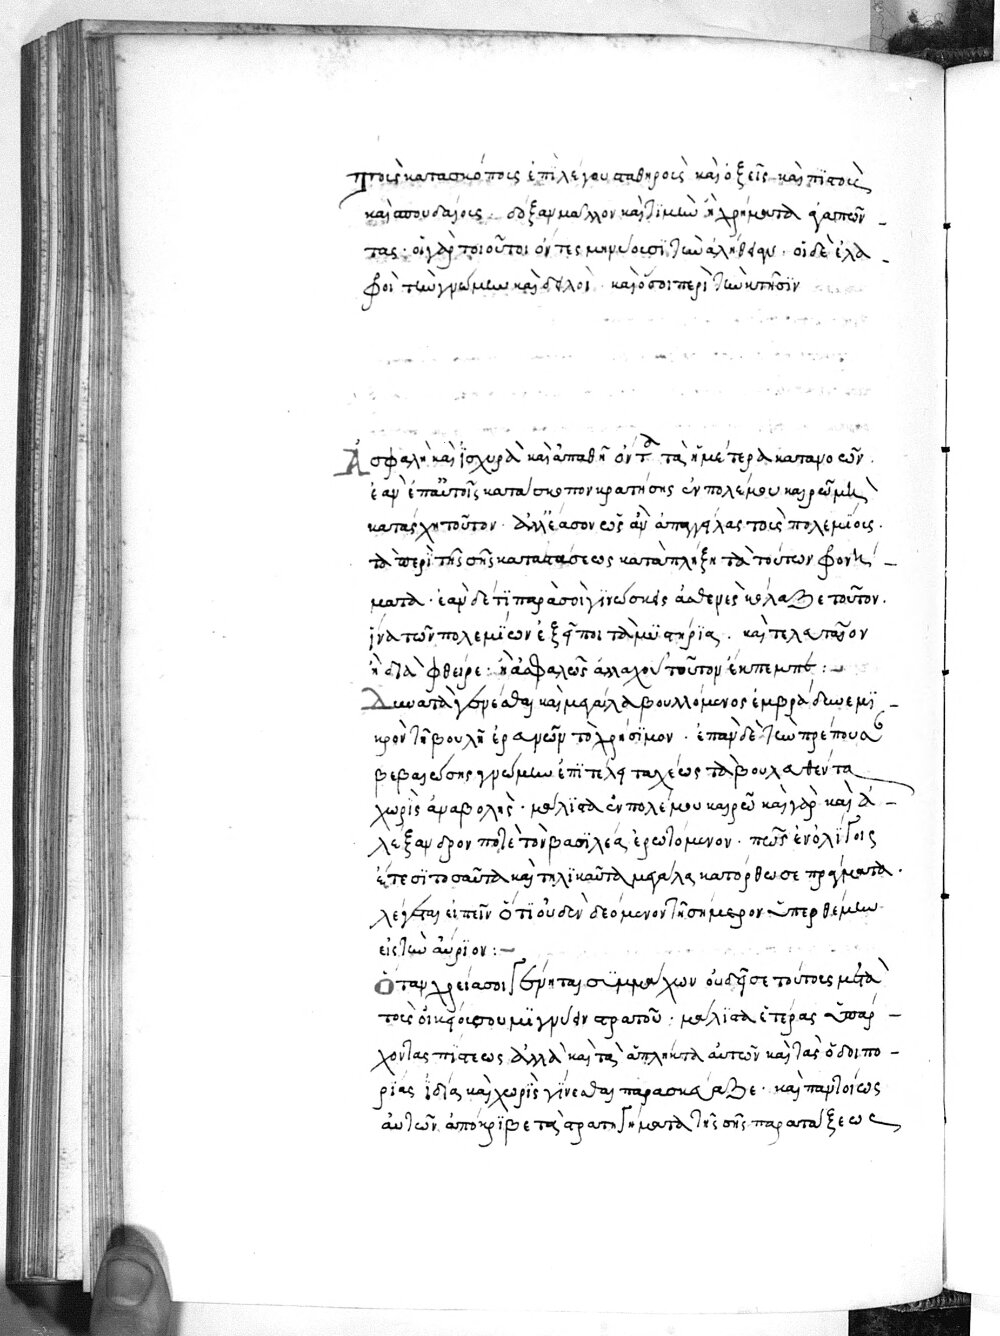 τοὺς κατασκόπους ἐπιλέγου σταθηροὺς καὶ ὀξεῖς καὶ πιστοὺς
καὶ σπουδαίους δόξαν μᾶλλον καὶ τιμὴν ἢ χρήματα ἀγαπῶν
τας· οἱ γὰρ τοιοῦτοι ὄντες μηνύουσι τὴν ἀλήθειαν· οἱ δὲ ἐλα
φροὶ τὴν γνώμην καὶ δειλοὶ· καὶ ὅσοι περὶ τὴν κτῆσιν
Ἀσφαλῆ καὶ ἰσχυρὰ καὶ ἀπαθῆ ὄντα τὰ ἡμέτερα κατανοῶν.
ἐὰν ἐπ' αὐτοῖς κατάσκοπον κρατήσης ἐν πολέμου καιρῶ μὴ
κατάσχη τοῦτον· ἀλλ' ἔασον ὡς ἂν ἀπαγγείλας τοῖς πολεμίοις.
τὰ περὶ τῆς σῆς καταστάσεως καταπλήξη τὰ τούτων φρονή
ματα· ἐὰν δέ τι παρὰ σοὶ γινώσκης ἀσθενὲς κόλαζε τοῦτον.
ἵνα τῶν πολεμίων ἐξείποι τὰ μυστήρια· καὶ τελευταῖον
ἢ διάφθειρε· ἢ ἀσφαλῶς ἀλλαχοῦ τοῦτον ἔκπεμπε:
Δυνατὰ γενέσθαι καὶ μεγάλα βουλλόμενος ἐμβράδυνε μι
κρὸν τῆ βουλῆ ἐρευνῶν τὸ χρήσιμον· ἐπὰν δὲ τὴν πρέπουσ
βεβαιώσης γνώμην ἐπιτέλει ταχέως τὰ βουλευθέντα
χωρὶς ἀναβολῆς· μάλιστα ἐν πολέμου καιρῶ καὶ γὰρ καὶ ἀ
λέξανδρον ποτὲ τὸν βασιλέα ἐρωτόμενον· πῶς ἐν ὀλίγοις
ἔτεσι τοσαῦτα καὶ τηλικαῦτα μεγάλα κατόρθωσε πράγματα.
λέγεται εἰπεῖν ὅτι οὐδὲν δεόμενον τῆς σήμερον ὑπερθέμην
εἰς τὴν αὔριον:
Ὅταν χρεία σοι γένηται συμμάχων οὐ δεῖ σε τούτοις μετὰ
τοῖς οἰκείοις σου μιγνύειν στρατοῦ· μάλιστα ἑτέρας ὑπάρ
χοντας πίστεως ἀλλὰ καὶ τὰ ἄπληκτα αὐτῶν καὶ τὰς ὁδοιπο
ρίας ἰδία καὶ χωρὶς γίνεσθαι παρασκεύαζε· καὶ παντοίως
αὐτῶν ἀπόκρυβε τὰ στρατηγήματα τῆς σῆς παρατάξεως